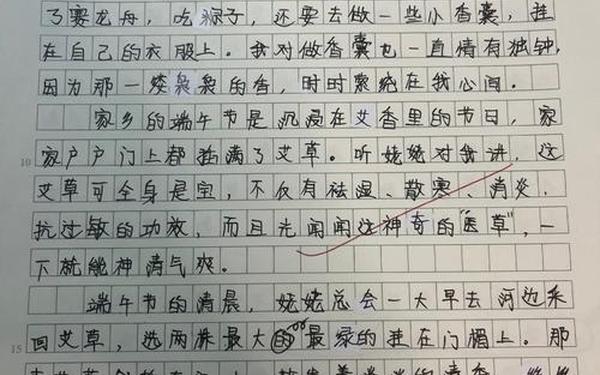 了赛龙舟，吃粽子，还要去做一些小香囊，挂
在自己的衣服上。我对做香囊也一直情有独钟，
因为那一缕袅袅的香，时时萦绕在我心间。
家乡的端午节是沉浸在艾香里的节日，家
10 家户户门上都插满了艾草。听姥姥对我讲，这
艾草可全身是宝，不仅有祛湿、散寒、消炎、
抗过敏的功效，而且光闻闻这神奇的"医草"，一
下就能神清气爽。
端午节的清晨，姥姥总会一大早去河边采
15 回艾草，选两株最大的最绿的挂在门楣上。那